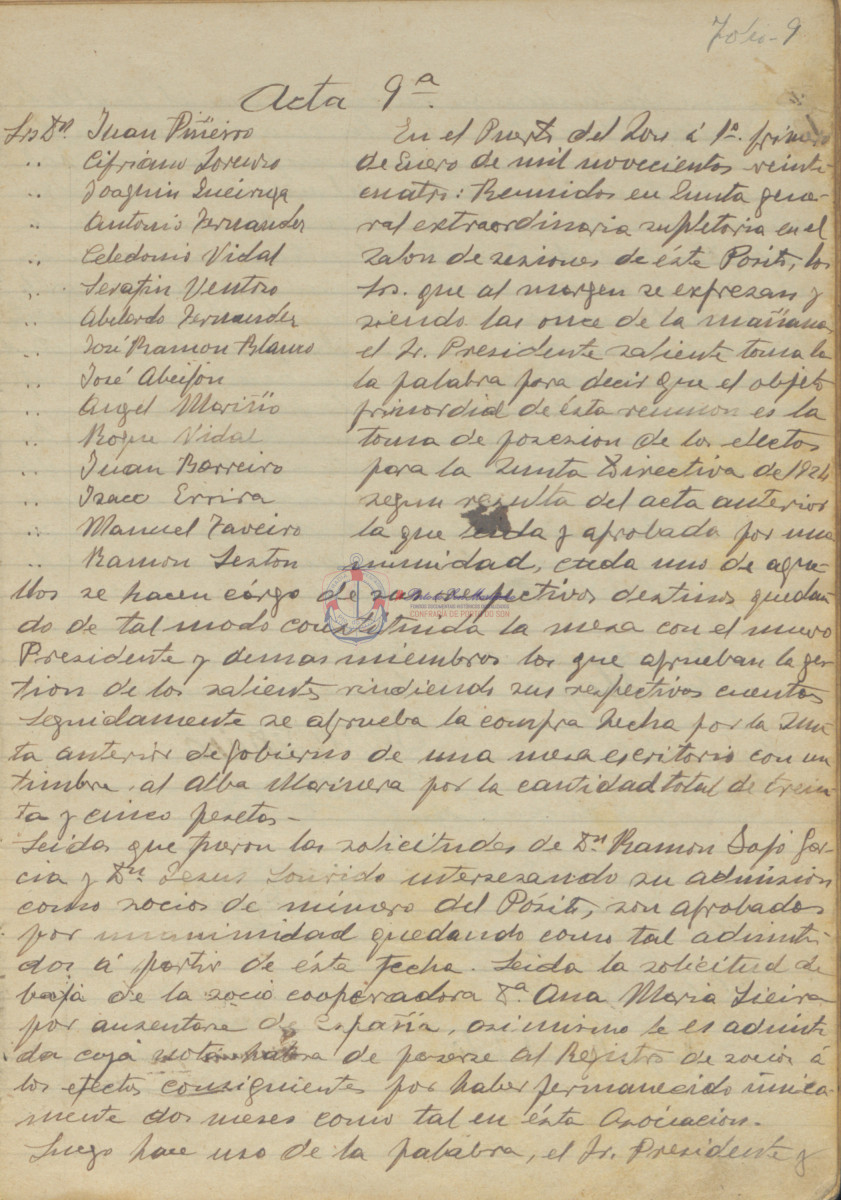 Folio-9
Acta 9ª.
Srs Dn Juan Piñeiro
" Cipriano Lorenzo
" Joaquin Queiruga
" Antonio Fernandez
" Celedonio Vidal
" Serafin Ventoso
" Abelardo Fernandez
" José Ramon Blanco
" José Abeijón
" Angel Mariño
" Roque Vidal
" Juan Barreiro
" Izaco Errira
" Manuel Taveiro
" Ramon Sexton
En el Puerto del Son á 1º. primero
de Enero de mil novecientos veinti-
cuatro: Reunidos en Junta gene-
ral extraordinaria supletoria en el
salon de sesiones de éste Posito, los
Srs. que al margen se expresan y
siendo las once de la mañana,
el Sr. Presidente saliente toma la
la palabra para decir que el objeto
primordial de ésta reunion es la
toma de posezion de los electos
para la Junta Directiva de 1924
segun resulta del acta anterior
la que leida y aprobada por una
nimidad, cada uno de aque-
llos se hacen cárgo de sus respectivos destinos quedan-
do de tal modo constituida la mesa con el nuevo
Presidente y demas miembros los que aprueban la ges-
tion de los salientes rindiendo sus respectivos cuentas
Seguidamente se aprueba la compra hecha por la Jun-
ta anterior de Gobierno de una mesa escritorio con un
timbre, al Alba Marinera por la cantidad total de trein-
ta y cinco pesetas-
Leidas que fueron las solicitudes de Dn Ramon Dosio Gar-
cia y Dn Jesus Lourido interesando su admision
como socios de número del Pósito, son aprobados
por unanimidad quedando como tal admiti-
dos á partir de ésta fecha. Leida la solicitud de
baja de la socio cooperadora Dª. Ana Maria Sieira
por ausentarse de España, asi mismo le es admiti
da cuya nota habra de pasarse al Registro de socios á
los efectos consiguientes por haber permanecido única-
mente dos meses como tal en ésta Asociacion.
Luego hace uso de la palabra, el Sr. Presidente y
CONFRARÍA DE PORTO DO SON